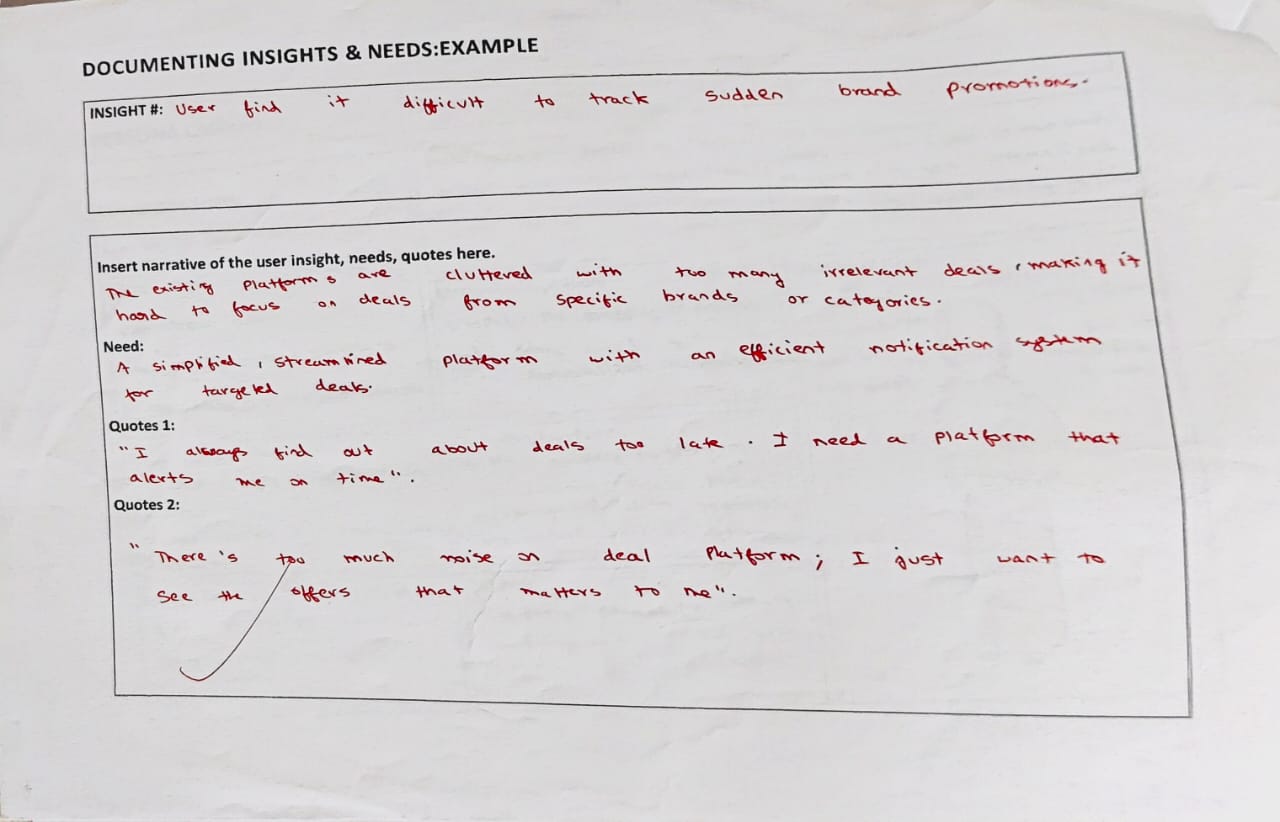 DOCUMENTING INSIGHTS & NEEDS:EXAMPLE
INSIGHT #: User find it difficult to track sudden brand promotions.
Insert narrative of the user insight, needs, quotes here.
The existing platforms are cluttered with too many irrelevant deals, making it
hard to focus on deals from specific brands or categories.
Need:
A simplified, streamlined platform with an efficient notification system
for targeted deals.
Quotes 1:
"I always find out about deals too late. I need a platform that
alerts me on time".
Quotes 2:
"There's too much noise on deal platform; I just want to
see the offers that matters to me".